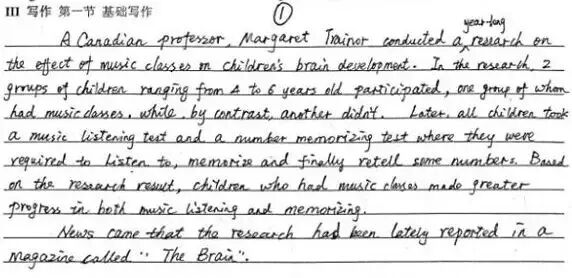 III 写作 第一节 基础写作 ①
A Canadian professor, Margaret Trainor conducted a year-long research on
the effect of music classes on children's brain development. In the research, 2
groups of children ranging from 4 to 6 years old participated, one group of whom
had music classes, while, by contrast, another didn't. Later, all children took
a music listening test and a number memorizing test where they were
required to listen to, memorize and finally retell some numbers. Based
on the research result, children who had music classes made greater
progress in both music listening and memorizing.
News came that the research had been lately reported in a
magazine called "The Brain".